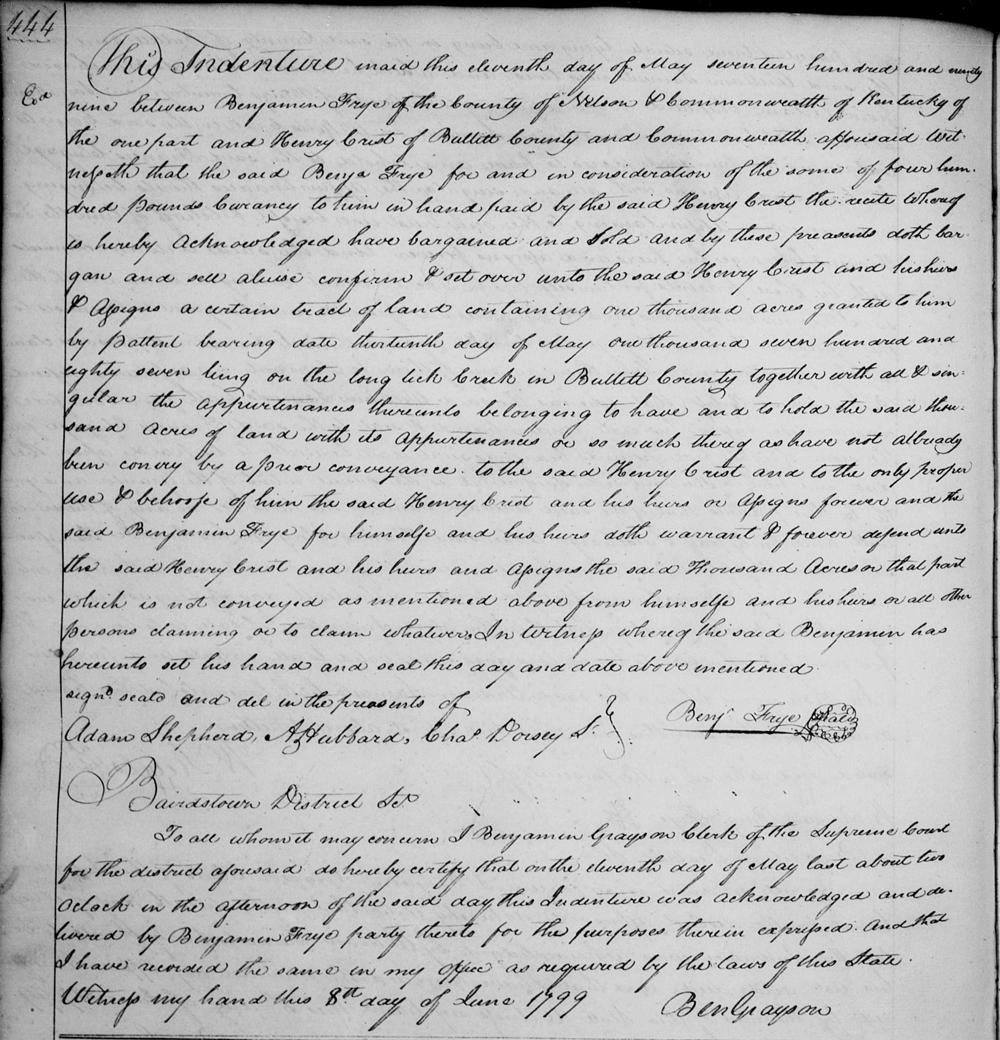 444
Exd
This Indenture maid this eleventh day of May seventeen hundred and ninety
nine between Benjamin Frye of the County of Nelson & Commonwealth of Kentucky of
the one part and Henry Crist of Bullett County and Commonwealth affousaid Wit-
nesseth that the said Benja Frye for and in consideration of the some of four hun-
dred pounds Curancy to him in hand paid by the said Henry Crist the recite whereof
is hereby acknowledged have bargained and sold and by these preasents doth bar-
gan and sell aluise confirm & set over unto the said Henry Crist and his heirs
& Assigns a certain tract of land containing one thousand acres granted to him
by pattent bearing date thirteenth day of May one thousand seven hundred and
eighty seven lieing on the long lick Creek in Bullett County together with all & sin-
gular the appurtenances thereunto belonging to have and to hold the said thou-
sand acres of land with its appurtenances or so much thereof as have not allready
been convey by a prior conveyance to the said Henry Crist and to the only proper
use & behoofe of him the said Henry Crist and his heirs or assigns forever and the
said Benjamin Frye for himselfe and his heirs doth warrant & forever defend unto
the said Henry Crist and his heirs and assigns the said Thousand Acres or that part
which is not conveyed as mentioned above from himselfe and his heirs or all other
persons claiming or to claim whatever. In Witness whereof the said Benjamin has
hereunto set his hand and seal this day and date above mentioned
signd seald and del in the preasents of
Adam Shepherd, A Hubbard, Chas Dorsey Sr. } Benj Frye seal
Bairdstown District Sct
To all whom it may concern I Benjamin Grayson Clerk of the Supreme Court
for the district aforesaid do hereby certify that on the eleventh day of May last about two
oclock in the afternoon of the said day this Indenture was acknowledged and de-
livered by Benjamin Frye party thereto for the purposes therein expressed. And that
I have recorded the same in my office as required by the laws of this State.
Witness my hand this 8th day of June 1799 Ben Grayson